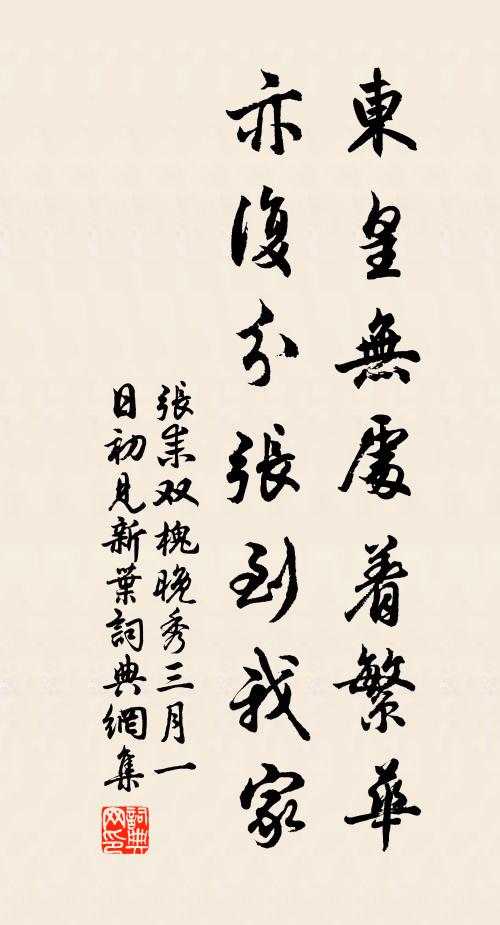 東皇無處着繁華
亦復分張到我家
張耒双槐晚秀三月一
日初見新葉詞典網集
詞典
网印